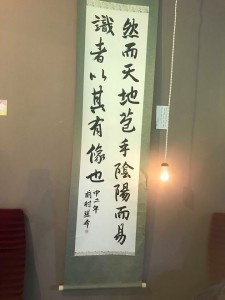 然而天地苞乎陰陽而易
識者以其有像也
中二年